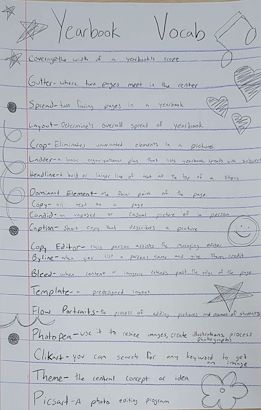 Yearbook Vocab
Coverage- the width of a yearbook's score
Gutter- where two pages meet in the center
Spread- two facing pages in a yearbook
Layout- Determine's overall spread of yearbook
Crop- Eliminates unwanted elements in a picture
Ladder- a basic organizational plan that lists yearbook spreads with
Headline- A bold or larger line of text at the top of a story
Dominant Element- the focal point of the page
Copy- all text on a page
Candid- an unposed or casual picture of a person
Caption- Short copy that describes a picture
Copy Editor- this person assists the managing editor
Byline- when you list a persons name and give them credit
Bleed- when content or images extends past the edge of the page
Template- a predesigned layout
Flow Portraits- the process of adding pictures and names of students
Photopea- use it to resize images, create illustrations, process
photographs
Clikart- you can search for any keyword to get
an image
Theme- the central concept or idea
Picsart- A photo editing program